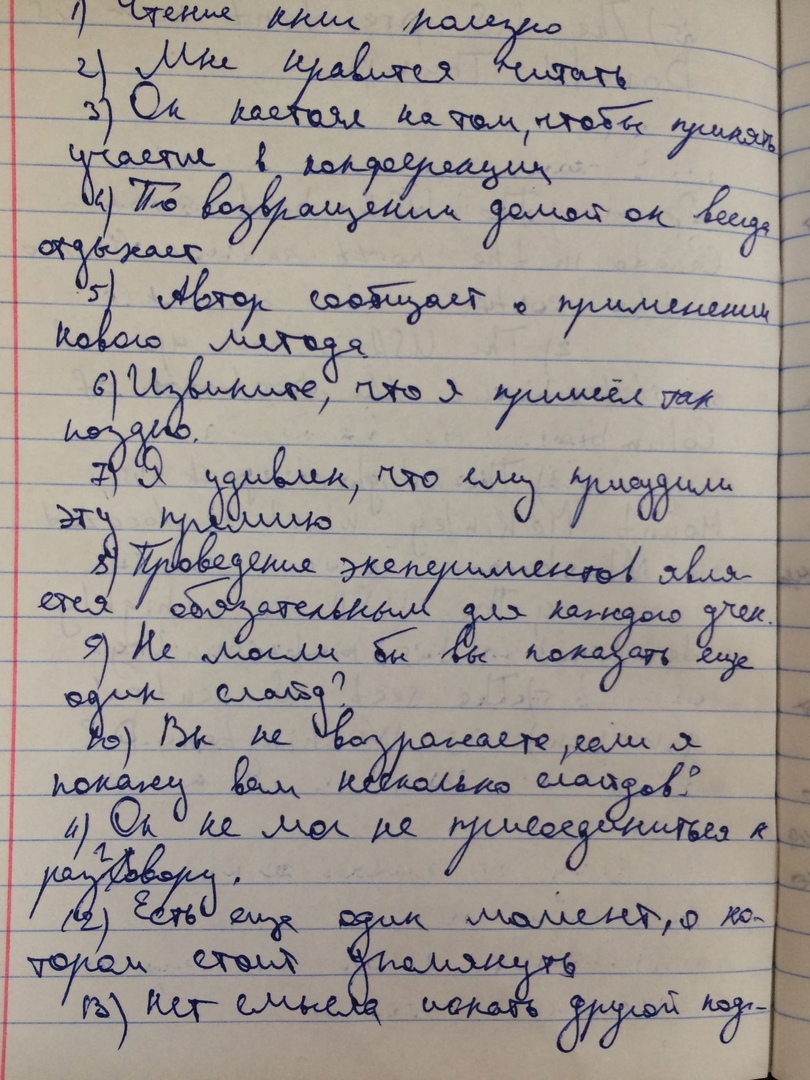 1) Чтение книг полезно
2) Мне нравится читать
3) Он настоял на том, чтобы принять
участие в конференции
4) По возвращении домой он всегда
отдыхает
5) Автор сообщает о применении
нового метода
6) Извините, что я пришёл так
поздно.
7) Я удивлен, что ему присудили
эту премию
8) Проведение экспериментов явля-
ется обязательным для каждого учен.
9) Не могли бы вы показать еще
один слайд?
10) Вы не возражаете, если я
покажу вам несколько слайдов?
11) Он не мог не присоединиться к
разговору.
12) Есть еще один момент, о ко-
тором стоит упомянуть
13) Нет смысла искать другой под-